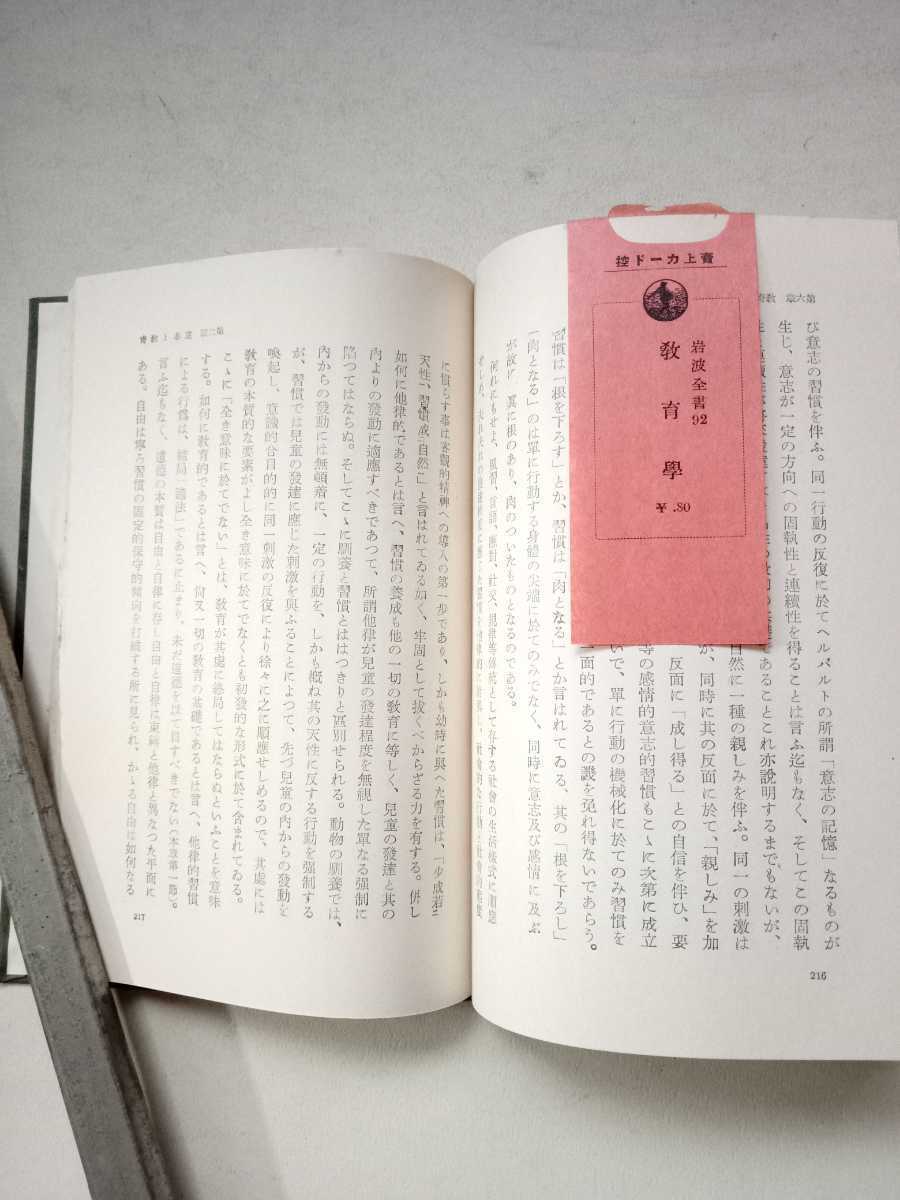 賣上カード控
岩波全書92
敎育學
¥ .80
第六章 敎育
び意志の習慣を伴ふ。同一行動の反復に於てヘルバルトの所謂「意志の記憶」なるものが
生じ、意志が一定の方向への固執性と連續性を得ることは言ふ迄もなく、そしてこの固執
あることこれ亦說明するまでもないが、
自然に一種の親しみを伴ふ。同一の刺激は
が、同時に其の反面に於て、「親しみ」を加
反面に「成し得る」との自信を伴ひ、要
等の感情的意志的習慣もこゝに次第に成立
いで、單に行動の機械化に於てのみ習慣を
面的であるとの譏を免れ得ないであらう。
習慣は「根を下ろす」とか、習慣は「肉となる」とか言はれてゐる、其の「根を下ろし」
「肉となる」のは單に行動する身體の尖端に於てのみでなく、同時に意志及び感情に及ぶ
が故に眞に根のあり、肉のついたものとなるのである。
何れにもせよ、風習、言語、應對、社交、規律等傳統として存する社會の生活樣式に順應
216
第二節
に慣らす事は客觀的精神への導入の第一步であり、しかも幼時に與へた習慣は、「少成若二
天性一、習慣成二自然一」と言はれてゐる如く、牢固として拔くべからざる力を有する。併し
如何に他律的であるとは言へ、習慣の養成も他の一切の敎育に等しく、兒童の發達と其の
內よりの發動に適應すべきであつて、所謂他律が兒童の發達程度を無視した單なる强制に
陷つてはならぬ。そしてこゝに馴養と習慣とははつきりと區別せられる。動物の馴養では、
內からの發動には無頓着に、一定の行動を、しかも槪ね其の天性に反する行動を强制する
が、習慣では兒童の發達に應じた刺激を與ふることによつて、先づ兒童の內からの發動を
喚起し、意識的合目的的に同一刺激の反復により徐々に之に順應せしめるので、其處には
敎育の本質的な要素がよし全き意味に於てでなくとも初發的な形式に於て含まれてゐる。
こゝに「全き意味に於てでない」とは、敎育が其處に終局してはならぬといふことを意味
する。如何に敎育的であるとは言へ、尙又一切の敎育の基礎であるとは言へ、他律的習慣
による行爲は、結局「適法」であるに止まり、未だ道德を以て目すべきでない(本章第一節)。
言ふ迄もなく、道德の本質は自由と自律に存し自由と自律は束縛と他律と異なつた平面に
ある。自由は寧ろ習慣の固定的保守的傾向を打破する所に見られ、かゝる自由は如何なる
217